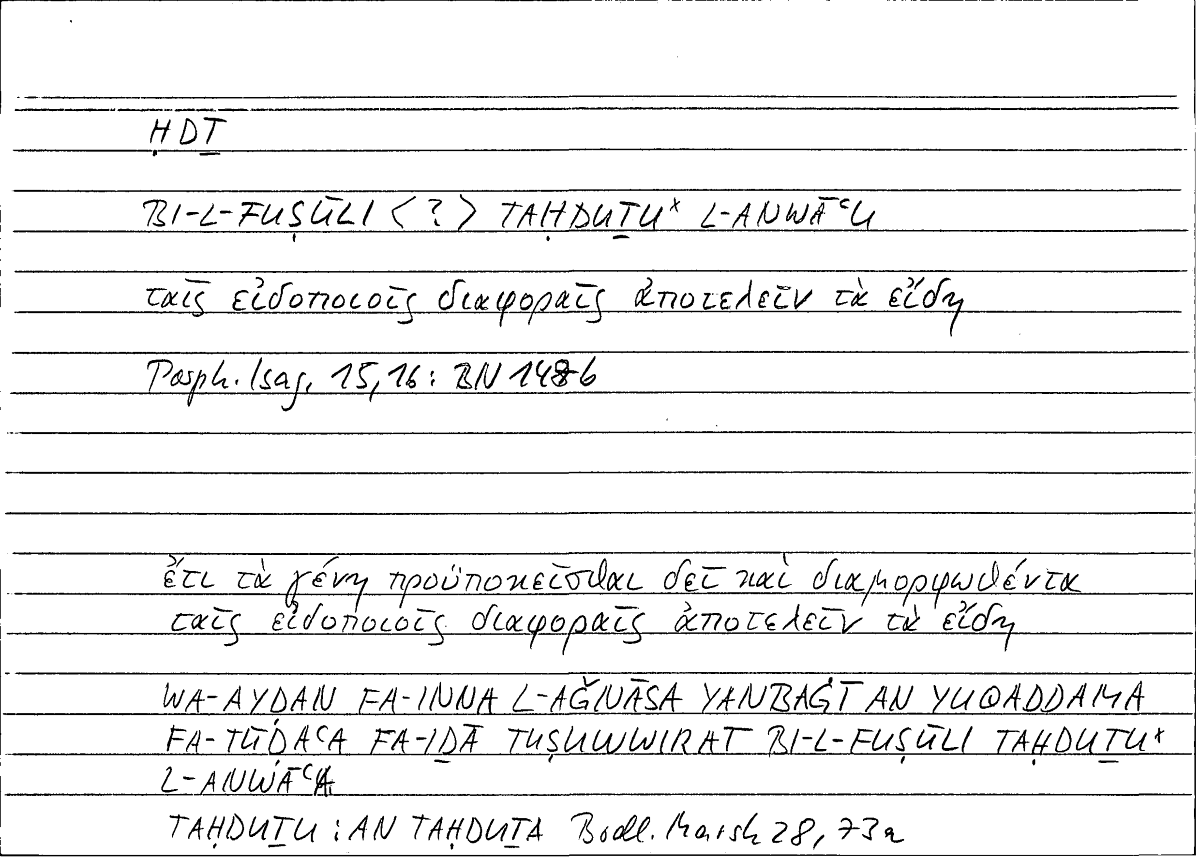 ḤDṮ
BI-L-FUṢŪLI < ? > TAḤDUṮUˣ L-ANWĀʿU
ταῖς εἰδοποιοῖς διαφοραῖς ἀποτελεῖν τὰ εἴδη
Porph. Isag. 15,16: BN 148b
ἔτι τὰ γένη προϋποκεῖσθαι δεῖ καὶ διαμορφωθέντα
ταῖς εἰδοποιοῖς διαφοραῖς ἀποτελεῖν τὰ εἴδη
WA-AYḌAN FA-INNA L-AǦNĀSA YANBAĠĪ AN YUQADDAMA
FA-TŪḌAʿA FA-IḎĀ TUṢUWWIRAT BI-L-FUṢŪLI TAḤDUṮUˣ
L-ANWĀʿA
TAḤDUṮU : AN TAḤDUṮA Bodl. Marsh 28, 73a